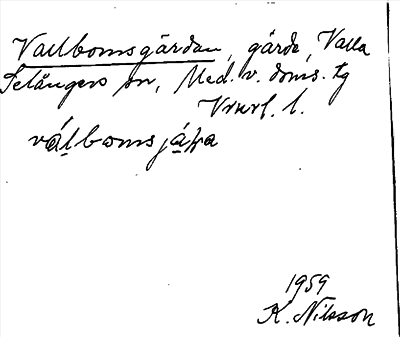 Vallbomsgärdan, gärde, Valla
Selångers sn, Med. v. doms. tg
Vnrl. l.
válbomsjáḥa
1959
K. Nilsson